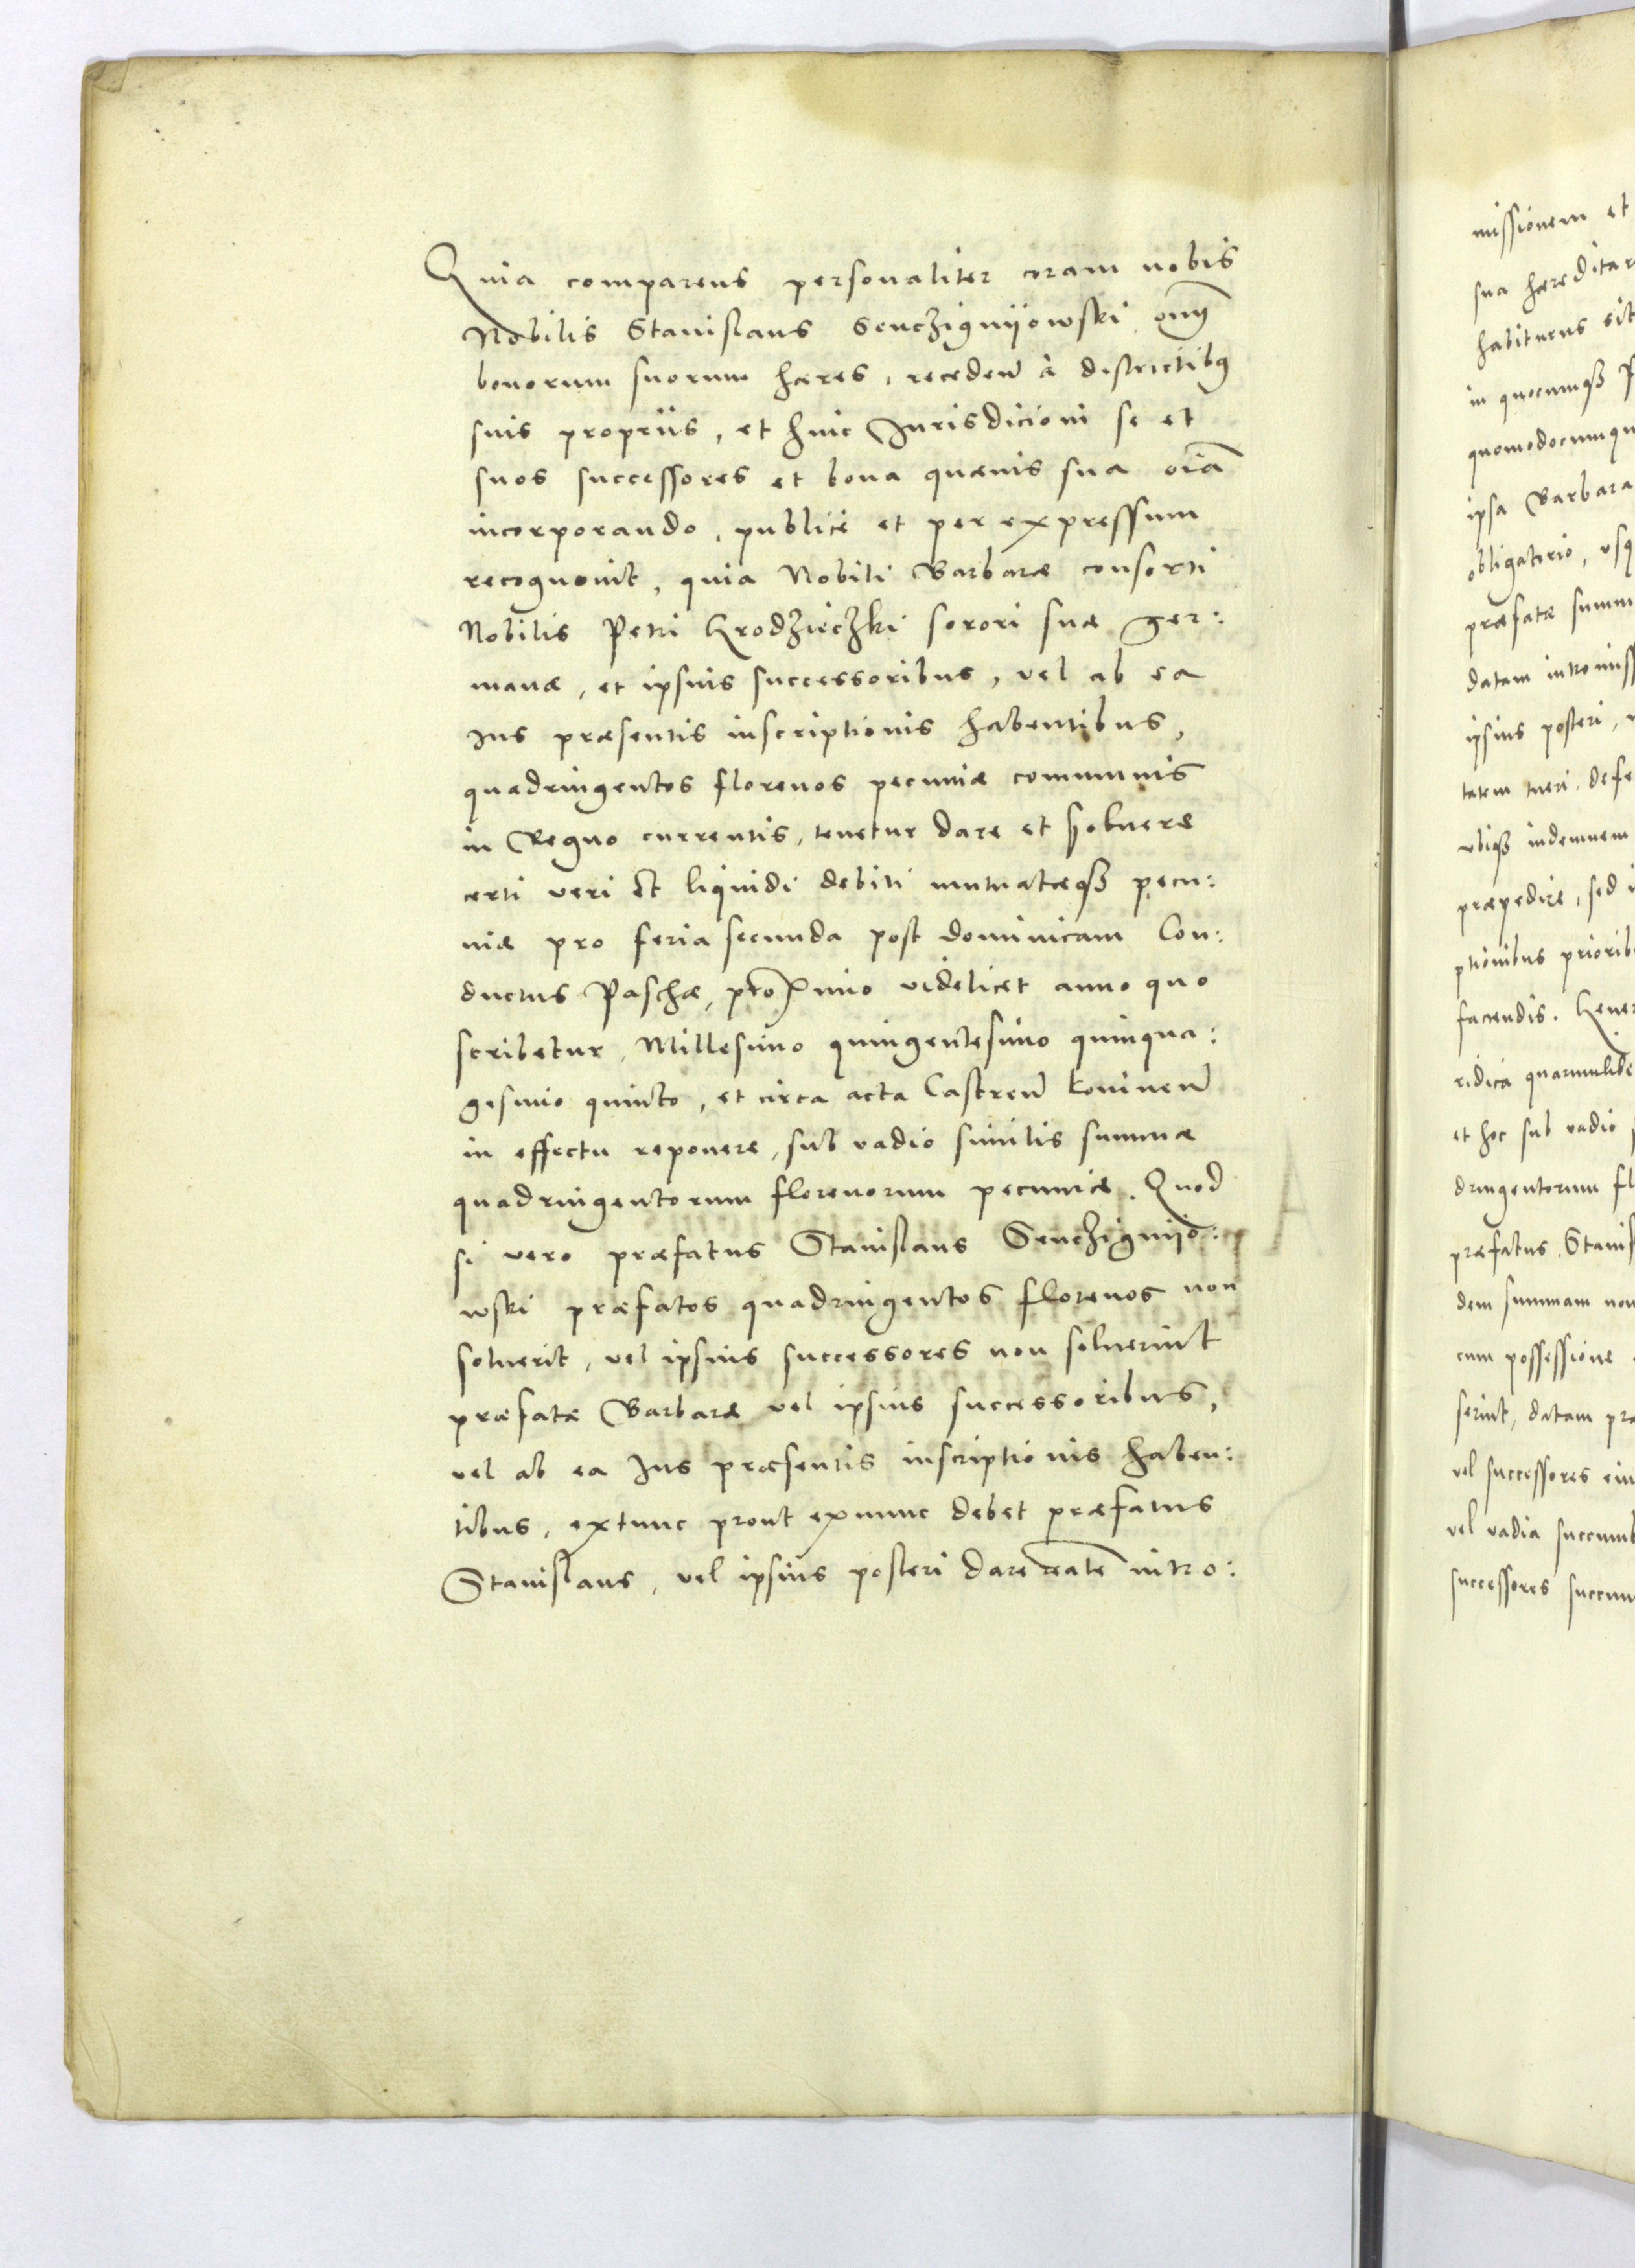 Quia comparens personaliter coram nobis
Nobilis Stanislaus Senczignijowski oīm
bonorum suorum hæres, receden̄ à districtibq
suis propriis, et huic Jurisdicioni se et
suos successores et bona quævis sua oīa
incorporando, publicè et per expressum
recognovit, quia Nobili Barbaræ consorti
Nobilis Petri Grodzieczki sorori suæ ger:
manæ, et ipsius successoribus, vel ab ea
Jus præsentis inscriptionis habentibus,
quadringentos florenos pecuniæ communis
in Regno currentis, tenetur dare et solvere
certi veri et liquidi debiti mutuatæqꝫ pecu:
niæ pro feria secunda post dominicam Con:
ductus Paschæ, proximo videlicet anno quo
scribetur, Millesimo quingentesimo quinqua:
gesimo quinto, et circa acta Castren̄ Coninen̄
in effectu reponere, sub vadio similis summæ
quadringentorum florenorum pecuniæ. Quod
si vero præfatus Stanislaus Senczignijo:
wski præfatos quadringentos florenos non
solverit, vel ipsius successores non solverint
præfatæ Barbaræ vel ipsius successoribus,
vel ab ea Jus præsentis inscriptionis haben:
tibus, extunc prout exnunc debet præfatus
Stanislaus, vel ipsius posteri dare realē intro:
missionem et
sua hæreditar
habiturus sit
in quocumqꝫ
quomodocumqu
ipsa Barbara
obligatorio, usq
præfatæ summ
datam intromiss
ipsius posteri,
tatem tueri, defe
ubiqꝫ indemnem
præpedire, sed
ptionibus priorib
faciendis. Gener
ridica quarumlibe
et hoc sub vadio
dringentorum fl
præfatus Stanis
dem summam non
cum possessione
serint, datam præ
vel successores eiu
vel vadia succumb
successores succum